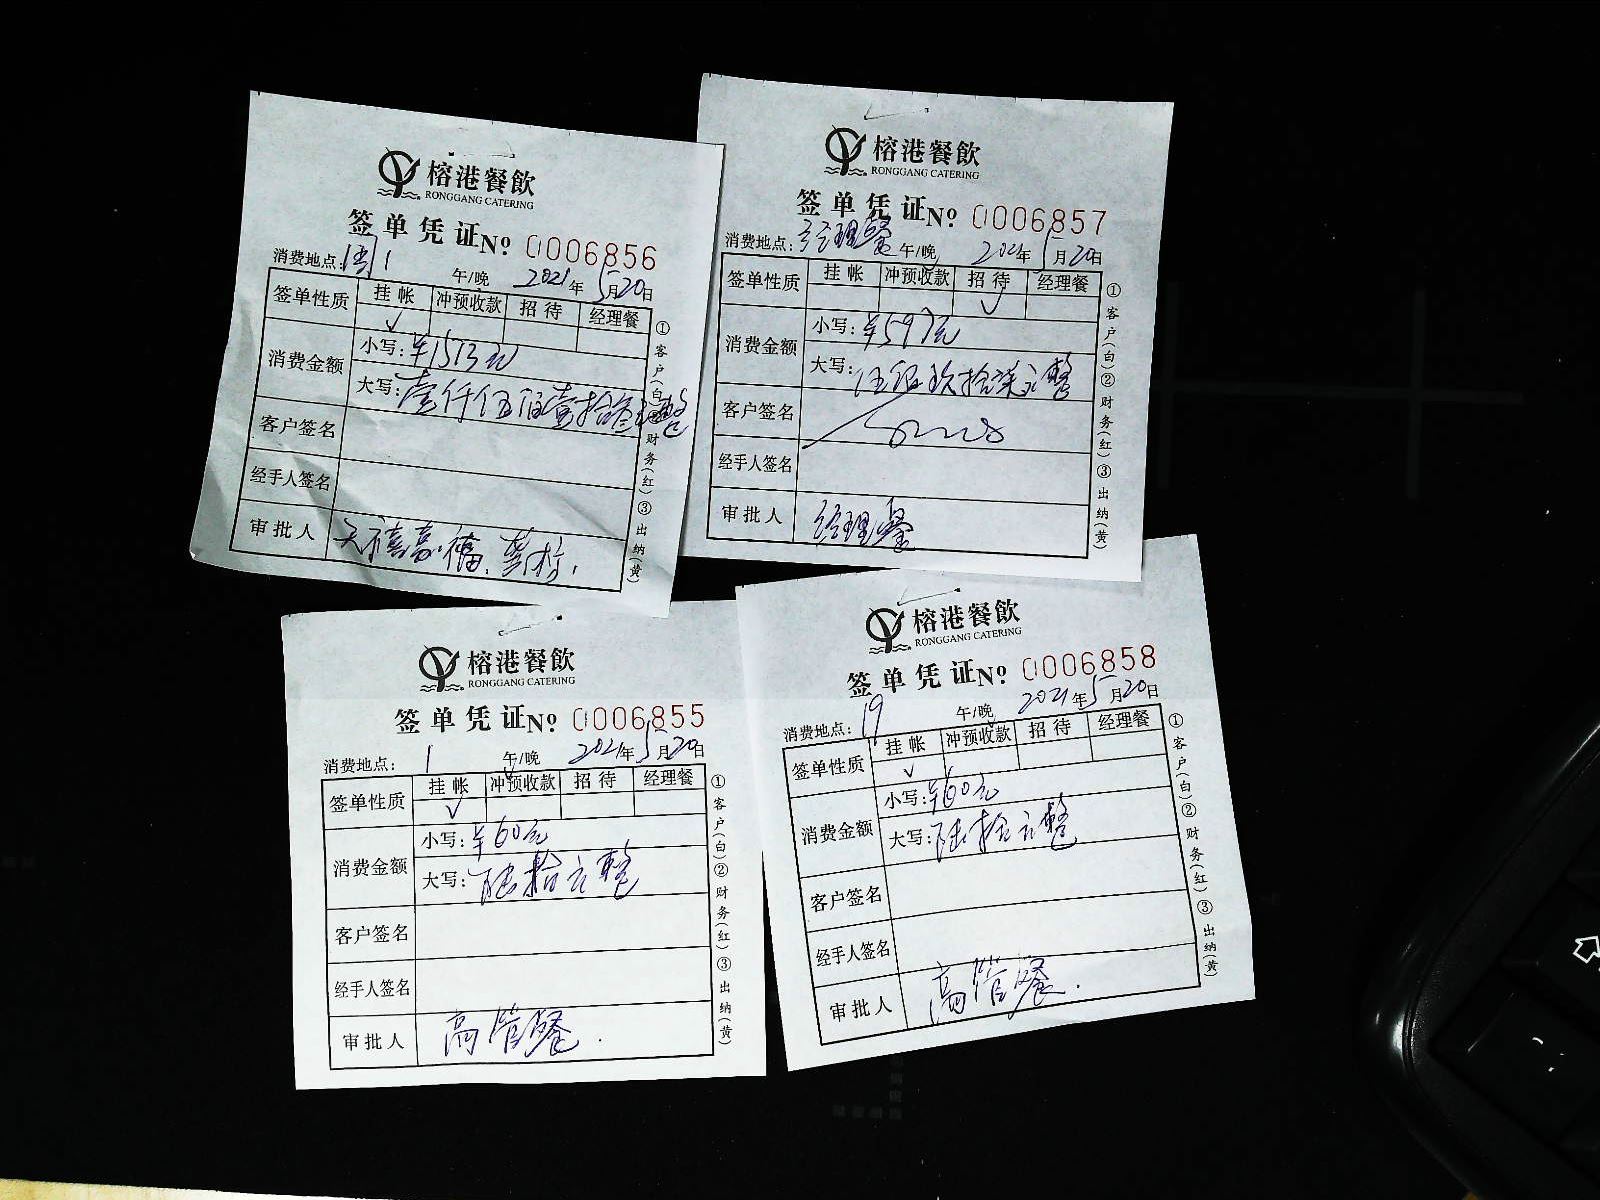 榕港餐飲
RONGGANG CATERING
签单凭证№ 0006856
消费地点: 1 午/晚 2021年5月20日
签单性质 挂帐 冲预收款 招待 经理餐
✓
消费金额 小写:¥1513元
大写:壹仟伍佰壹拾叁元整
客户签名
经手人签名
审批人
①客户(白)②财务(红)③出纳(黄)
榕港餐飲
RONGGANG CATERING
签单凭证№ 0006857
消费地点:经理餐 午/晚 2021年5月20日
签单性质 挂帐 冲预收款 招待 经理餐
✓
消费金额 小写:¥597元
大写:伍佰玖拾柒元整
客户签名
经手人签名
审批人 经理餐
①客户(白)②财务(红)③出纳(黄)
榕港餐飲
RONGGANG CATERING
签单凭证№ 0006855
消费地点: 1 午/晚 2021年5月20日
签单性质 挂帐 冲预收款 招待 经理餐
✓
消费金额 小写:¥60元
大写:陆拾元整
客户签名
经手人签名
审批人 高管餐.
①客户(白)②财务(红)③出纳(黄)
榕港餐飲
RONGGANG CATERING
签单凭证№ 0006858
消费地点: 19 午/晚 2021年5月20日
签单性质 挂帐 冲预收款 招待 经理餐
✓
消费金额 小写:¥60元
大写:陆拾元整
客户签名
经手人签名
审批人 高管餐.
①客户(白)②财务(红)③出纳(黄)